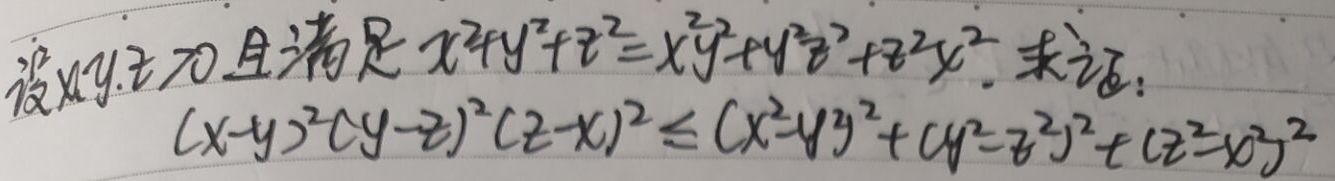 设x,y,z>0且满足 x²+y²+z²=x²y²+y²z²+z²x². 求证:
(x-y)²(y-z)²(z-x)² ≤ (x²-y²)²+(y²-z²)²+(z²-x²)²